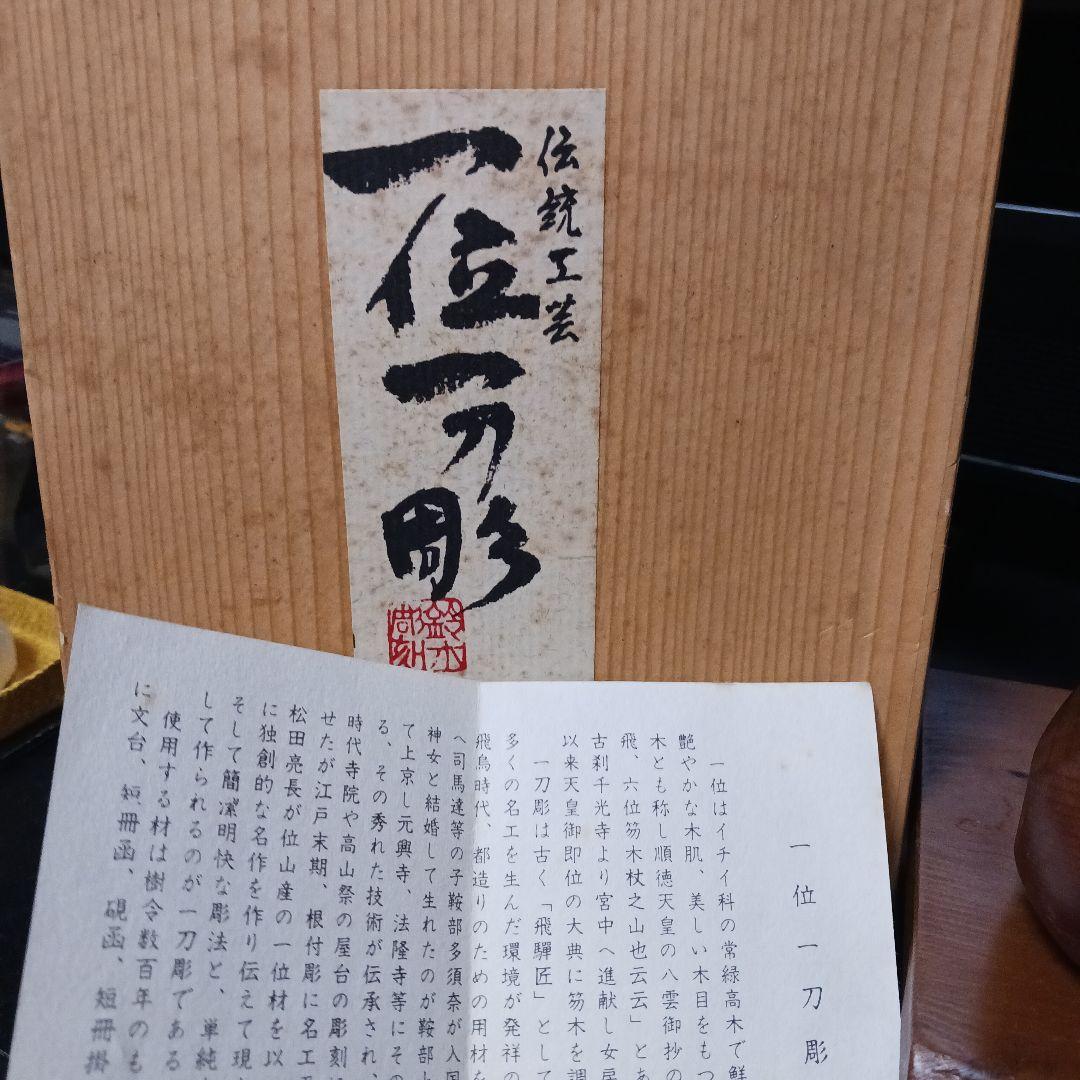 伝統工芸
一位一刀彫
鈴木
彫刻
一位一刀彫
一位はイチイ科の常緑高木で鮮
艶やかな木肌、美しい木目をもつ
木とも称し順徳天皇の八雲御抄の
飛、六位笏木杖之山也云云」とあ
古刹千光寺より宮中へ進献し女房
以来天皇御即位の大典に笏木を調
一刀彫は古く「飛驒匠」として
多くの名工を生んだ環境が発祥の
飛鳥時代、都造りのための用材を
へ司馬達等の子鞍部多須奈が入国
神女と結婚して生れたのが鞍部
て上京し元興寺、法隆寺等にその
る、その秀れた技術が伝承され、
時代寺院や高山祭の屋台の彫刻
せたが江戸末期、根付彫に名工
松田亮長が位山産の一位材を以
に独創的な名作を作り伝えて現
そして簡潔明快な彫法と、単純
して作られるのが一刀彫である
使用する材は樹令数百年のも
に文台、短冊函、硯函、短冊掛